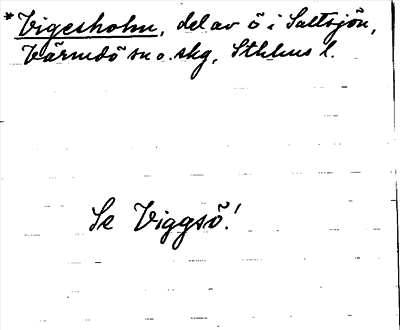 *Vigesholm, del av ö i Saltsjön,
Värmdö sn o. skg, Sthlms l.
Se Viggsö!